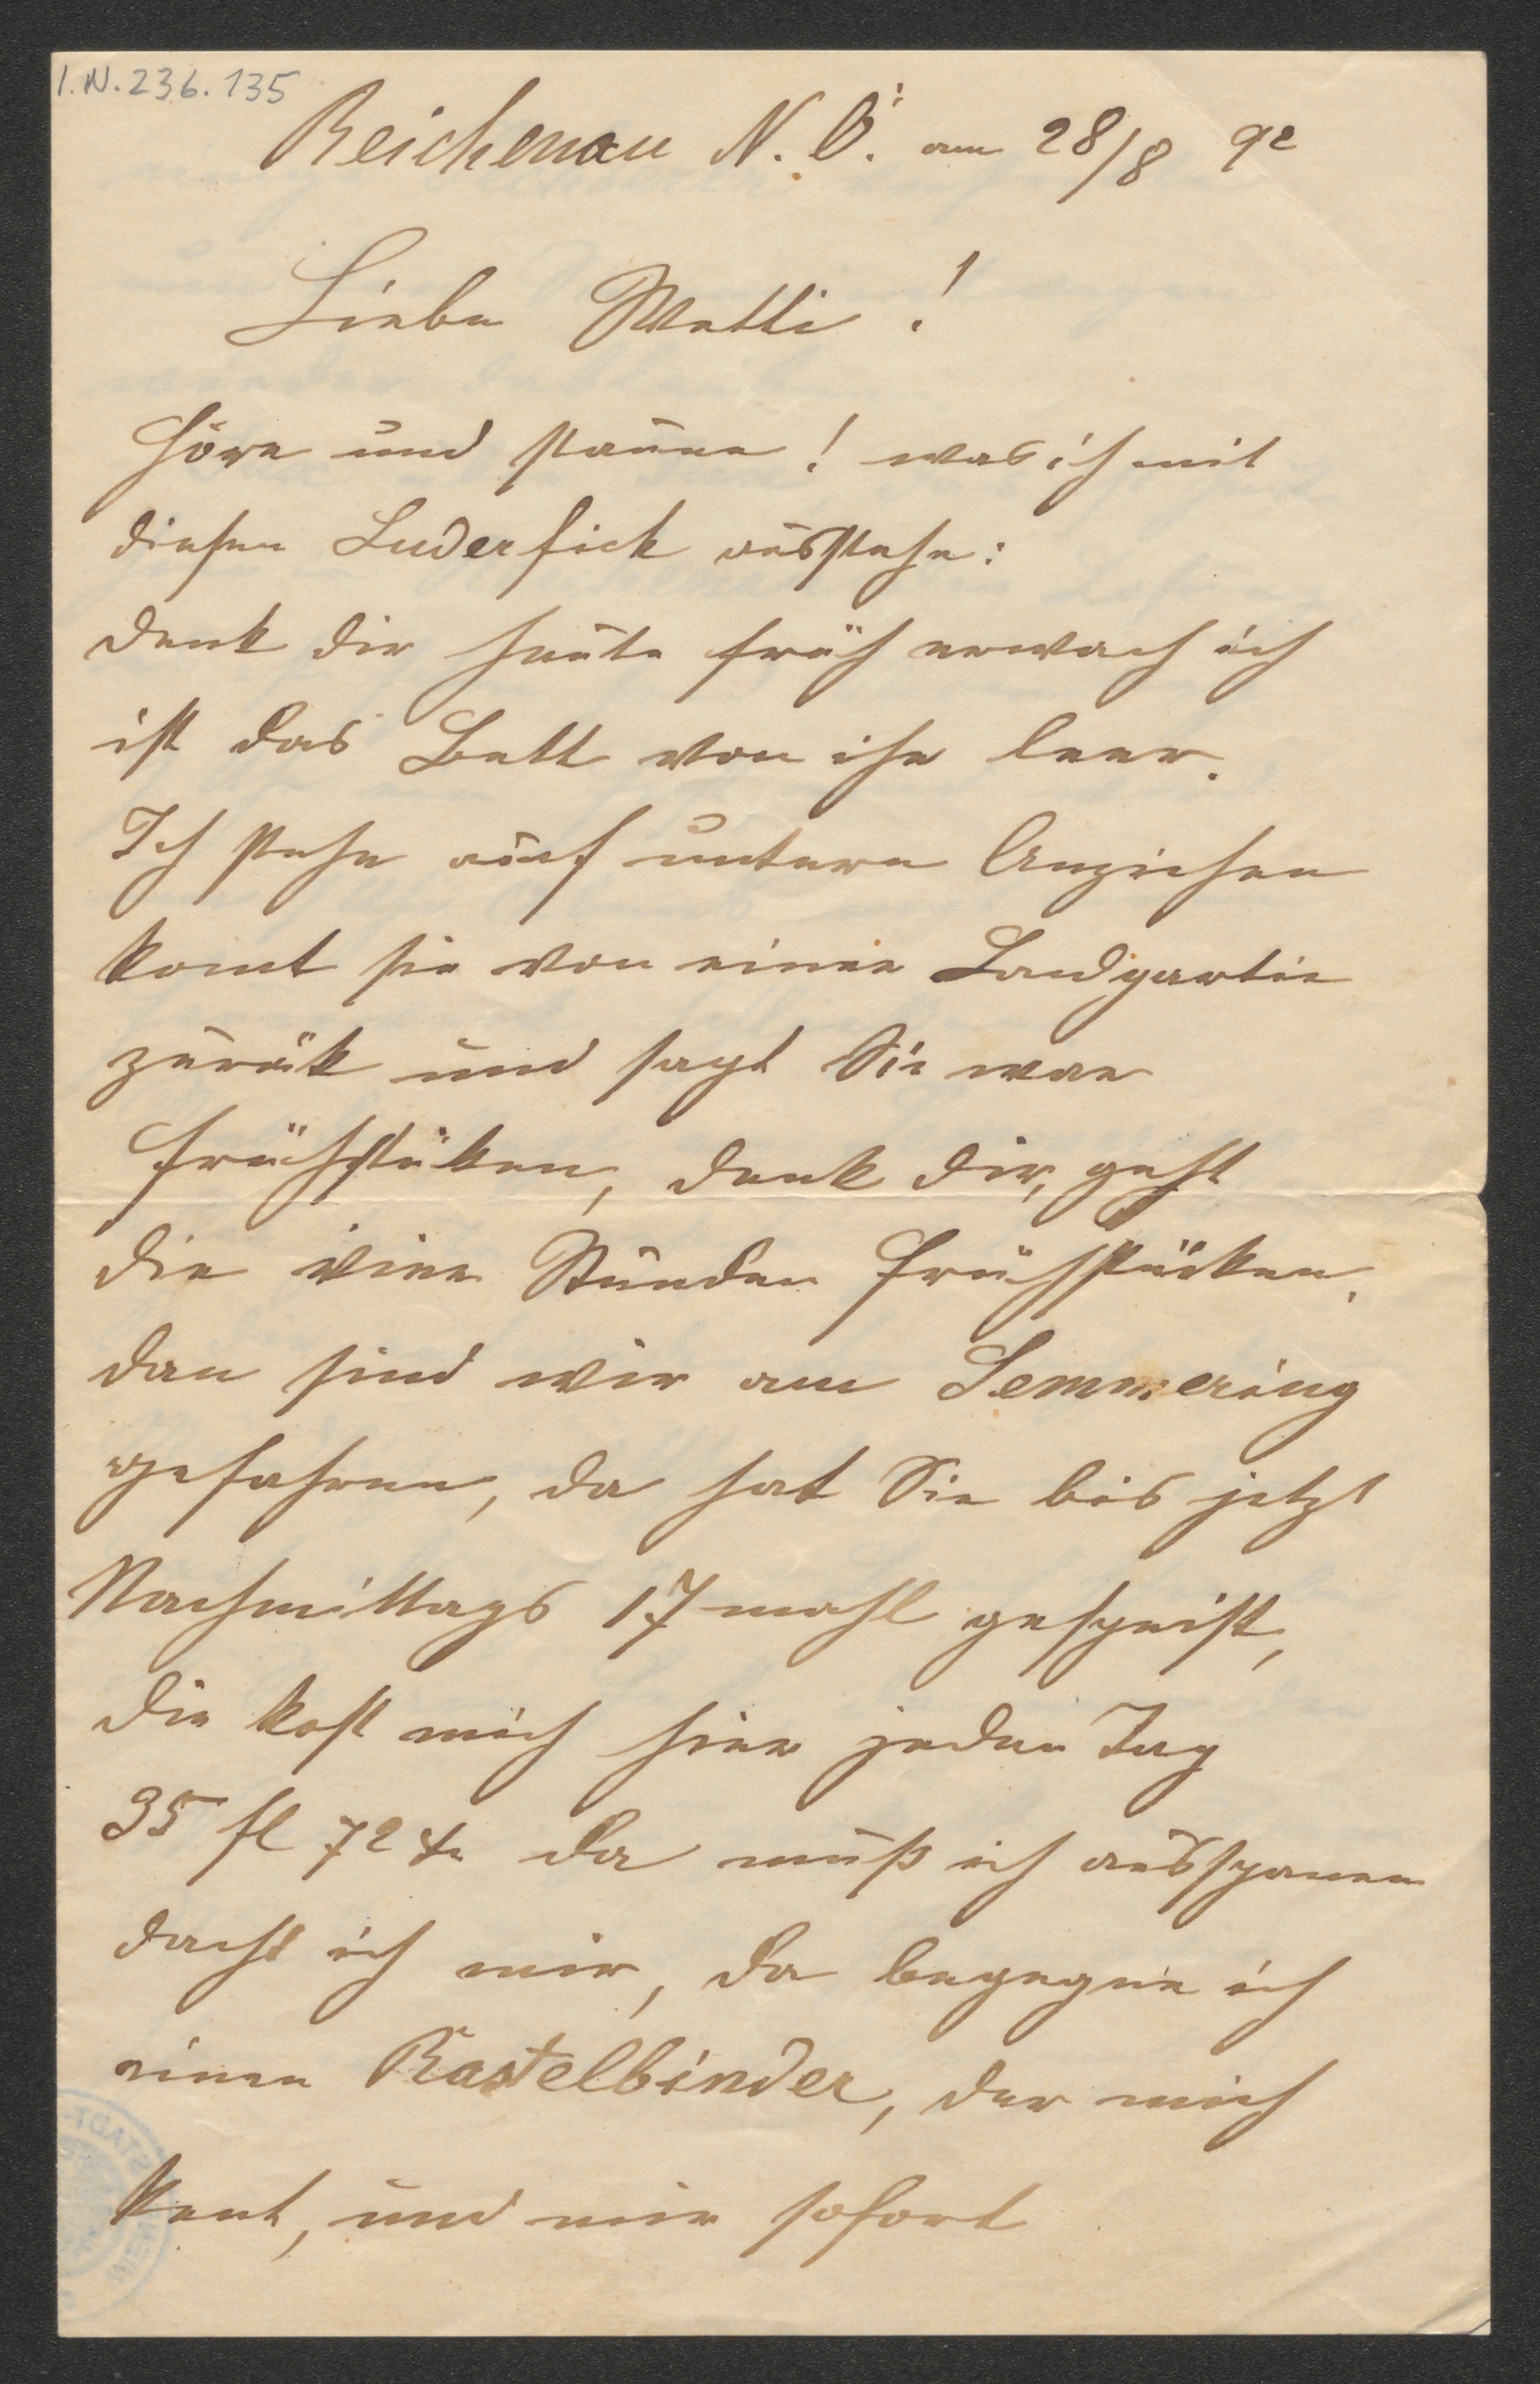 I.N. 236.135
Reichenau N.Ö. am 28/8 92
Liebe Wetti!
Höre und staune! was ich mit
diesen Luderfick ausstehe:
denk dir heute früh erwach ich
ist das Bett von ihr leer.
Ich stehe auf untern Anziehen
komt sie von einer Landpartie
zurük und sagt Sie war
frühstüken, denk dir, geht
die vier Stunden frühstüken,
dan sind wir am Semmering
gefahren, da hat Sie bis jetzt
Nachmittags 17 mahl gespeist,
die kost mich hier jeden Tag
35 fl 72 kr da muß ich ausspanen
dacht ich mir, da begegne ich
einen Rastelbinder, der mich
kent, und mir sofort